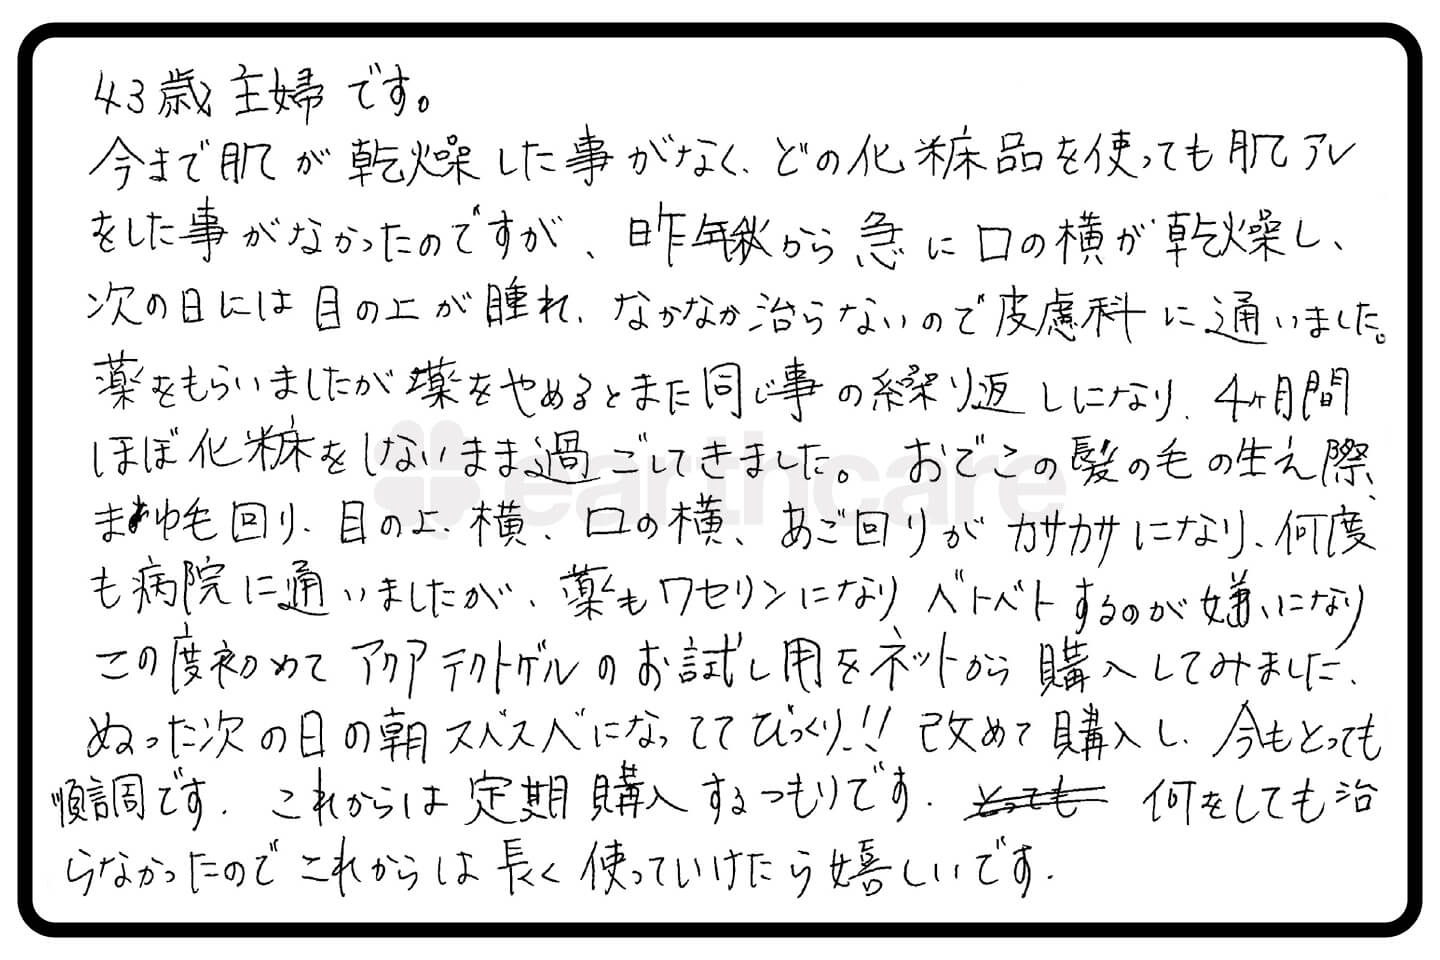 43歳主婦です。
今まで肌が乾燥した事がなく、どの化粧品を使っても肌アレ
をした事がなかったのですが、昨年秋から急に口の横が乾燥し、
次の日には目の上が腫れ、なかなか治らないので皮膚科に通いました。
薬をもらいましたが薬をやめるとまた同じ事の繰り返しになり、4ヶ月間
ほぼ化粧をしないまま過ごしてきました。おでこの髪の毛の生え際、
まゆ毛回り、目の上、横、口の横、あご回りがカサカサになり、何度
も病院に通いましたが、薬もワセリンになりベトベトするのが嫌いになり
この度初めてアクアテクトゲルのお試し用をネットから購入してみました、
ぬった次の日の朝スベスベになっててびっくり!! 改めて購入し、今もとっても
順調です. これからは定期購入するつもりです. とっても 何をしても治
らなかったのでこれからは長く使っていけたら嬉しいです.
earthcare